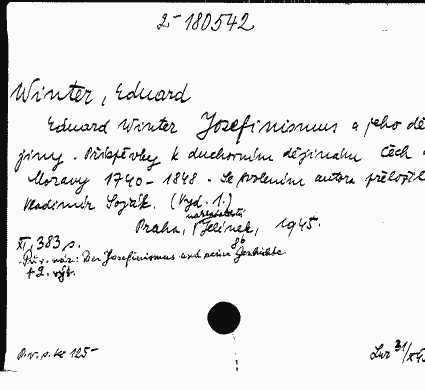 2-180542
Winter, Eduard
Eduard Winter Josefinismus a jeho dě
jiny. Příspěvky k duchovním dějinám Čech a
Moravy 1740-1848. Se svolením autora přeložil
Vladimír Soják. (Vyd. 1.)
nakladatel
Praha, Jelínek, 1945.
XI, 383 s. 8°
Pův. náz: Der Josefinismus und seine Geschichte
P.v.p. Kč 125-